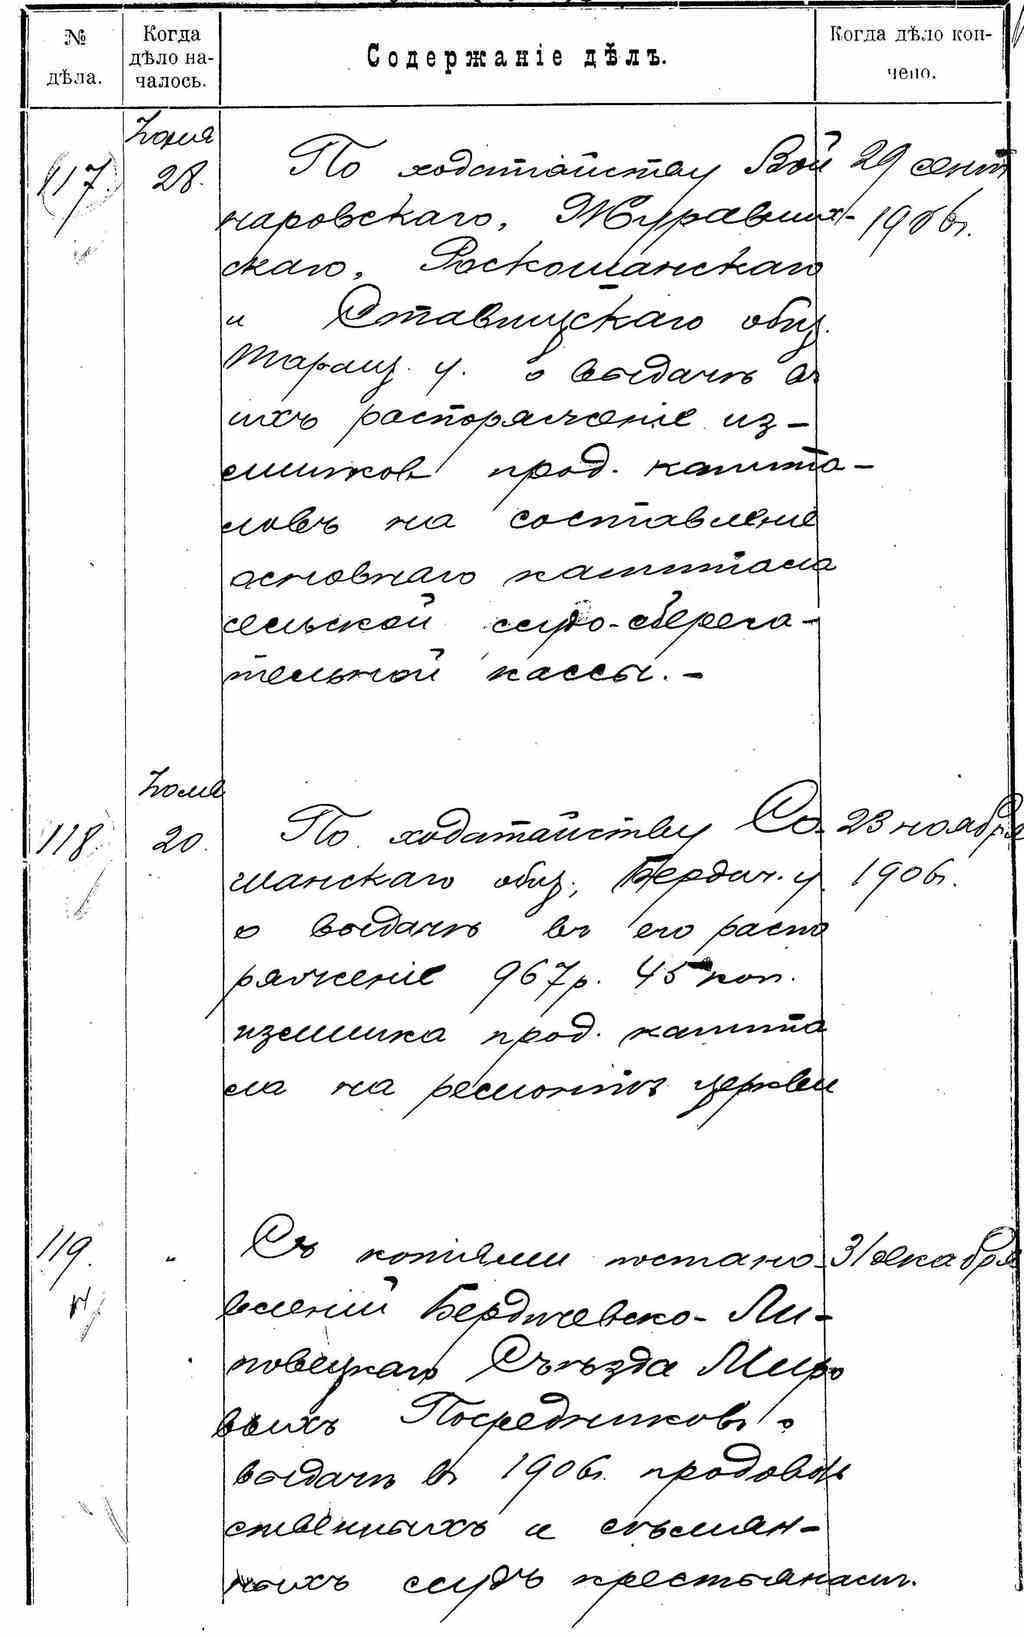 № дѣла.
Когда дѣло началось.
Содержаніе дѣлъ.
Когда дѣло кончено.
Іюня
117. 28. По ходатайству Вой- 29 сент
наровскаго, Журавлих- 1906г.
скаго, Роскошанскаго
и Ставищскаго общ.
Таращ. у. о выдачѣ въ
ихъ распоряженіе из-
лишковъ прод. капита-
ловъ на составленіе
основнаго капитала
сельской ссудо-сберега-
тельной кассы. -
Іюля
118. 20. По ходатайству Со- 23 ноября
шанскаго общ., Бердич. у. 1906г.
о выдачѣ въ его распо
ряженіе 967р. 45 коп.
излишка прод. капита
ла на ремонтъ церкви
119. " Съ копіями постано- 31 декабря
вленій Бердичевско-Ли-
повецкаго Съѣзда Миро
выхъ Посредниковъ о
выдачѣ въ 1906г. продоволь
ственныхъ и сѣмян-
ныхъ ссудъ крестьянамъ.